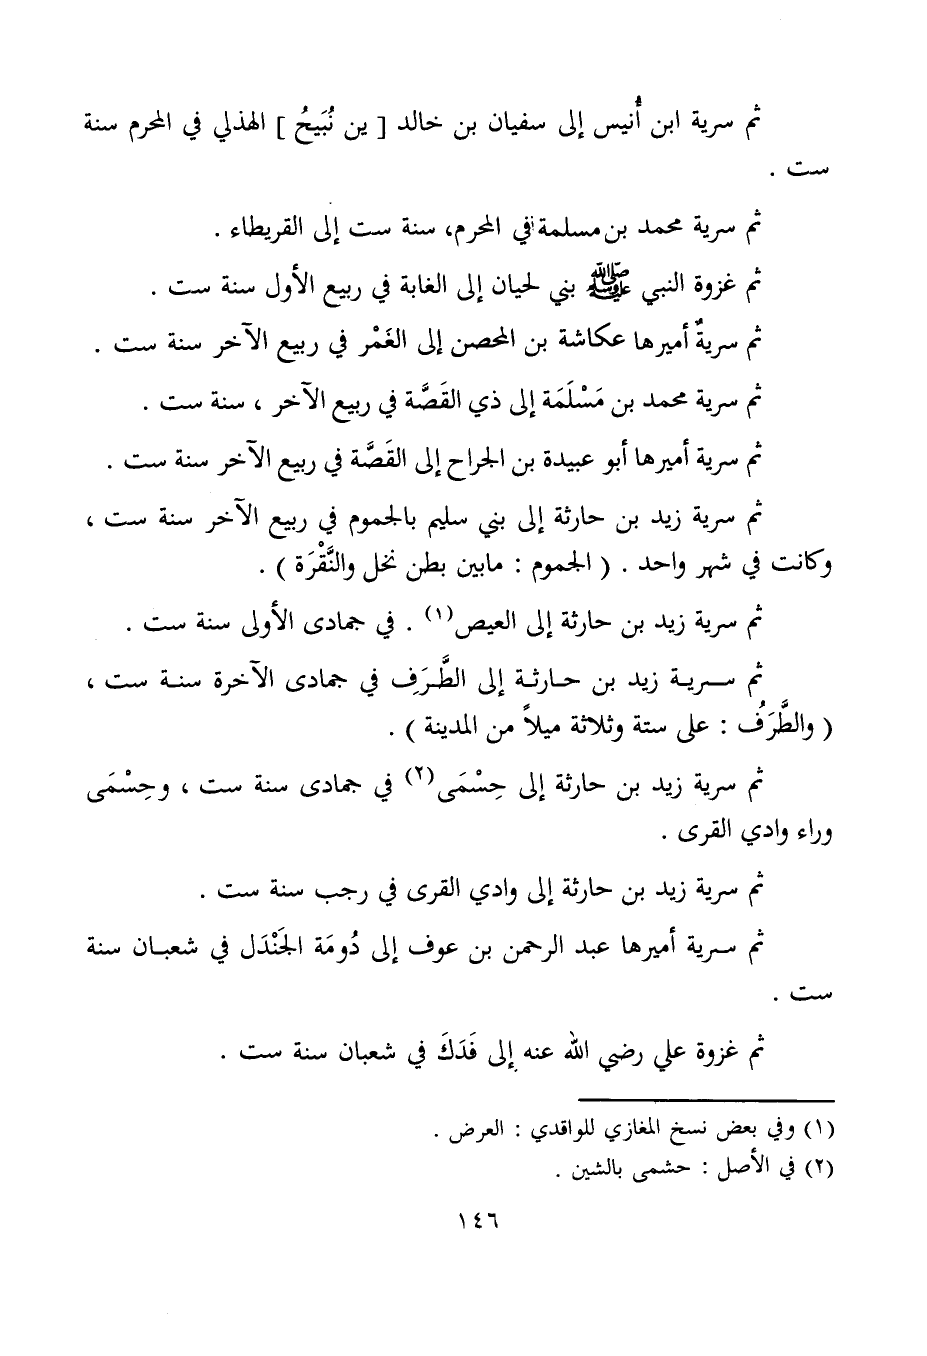 ثم سرية ابن أُنيس إلى سفيان بن خالد [ ين نُبَيحُ ] الهذلي في المحرم سنة
ست .
ثم سرية محمد بن مسلمة في المحرم، سنة ست إلى القريطاء .
ثم غزوة النبي ﷺ بني لحيان إلى الغابة في ربيع الأول سنة ست .
ثم سريةٌ أميرها عكاشة بن المحصن إلى الغَمْر في ربيع الآخر سنة ست .
ثم سرية محمد بن مَسْلَمَة إلى ذي القَصَّة في ربيع الآخر ، سنة ست .
ثم سرية أميرها أبو عبيدة بن الجراح إلى القَصَّة في ربيع الآخر سنة ست .
ثم سرية زيد بن حارثة إلى بني سليم بالجموم في ربيع الآخر سنة ست ،
وكانت في شهر واحد . ( الجموم : مابين بطن نخل والنَّقْرَة ) .
ثم سرية زيد بن حارثة إلى العيص(١) . في جمادى الأولى سنة ست .
ثم سرية زيد بن حارثة إلى الطَّرَفِ في جمادى الآخرة سنة ست ،
( والطَّرَفُ : على ستة وثلاثة ميلاً من المدينة ) .
ثم سرية زيد بن حارثة إلى حِسْمَى(٢) في جمادى سنة ست ، وحِسْمَى
وراء وادي القرى .
ثم سرية زيد بن حارثة إلى وادي القرى في رجب سنة ست .
ثم سرية أميرها عبد الرحمن بن عوف إلى دُومَة الجَنْدَل في شعبان سنة
ست .
ثم غزوة علي رضي الله عنه إلى فَدَكَ في شعبان سنة ست .
(١) وفي بعض نسخ المغازي للواقدي : العرض .
(٢) في الأصل : حشمى بالشين .
١٤٦